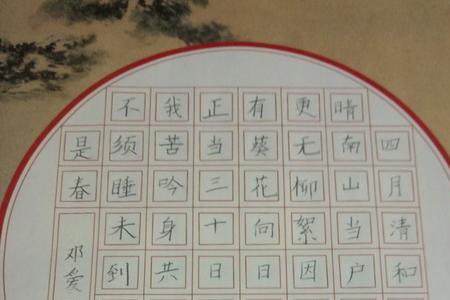 四月清和
晴南山当户
更无柳絮因
有葵花向日
正当三十日
我苦吟身共
不须睡未到
是春
邓爱